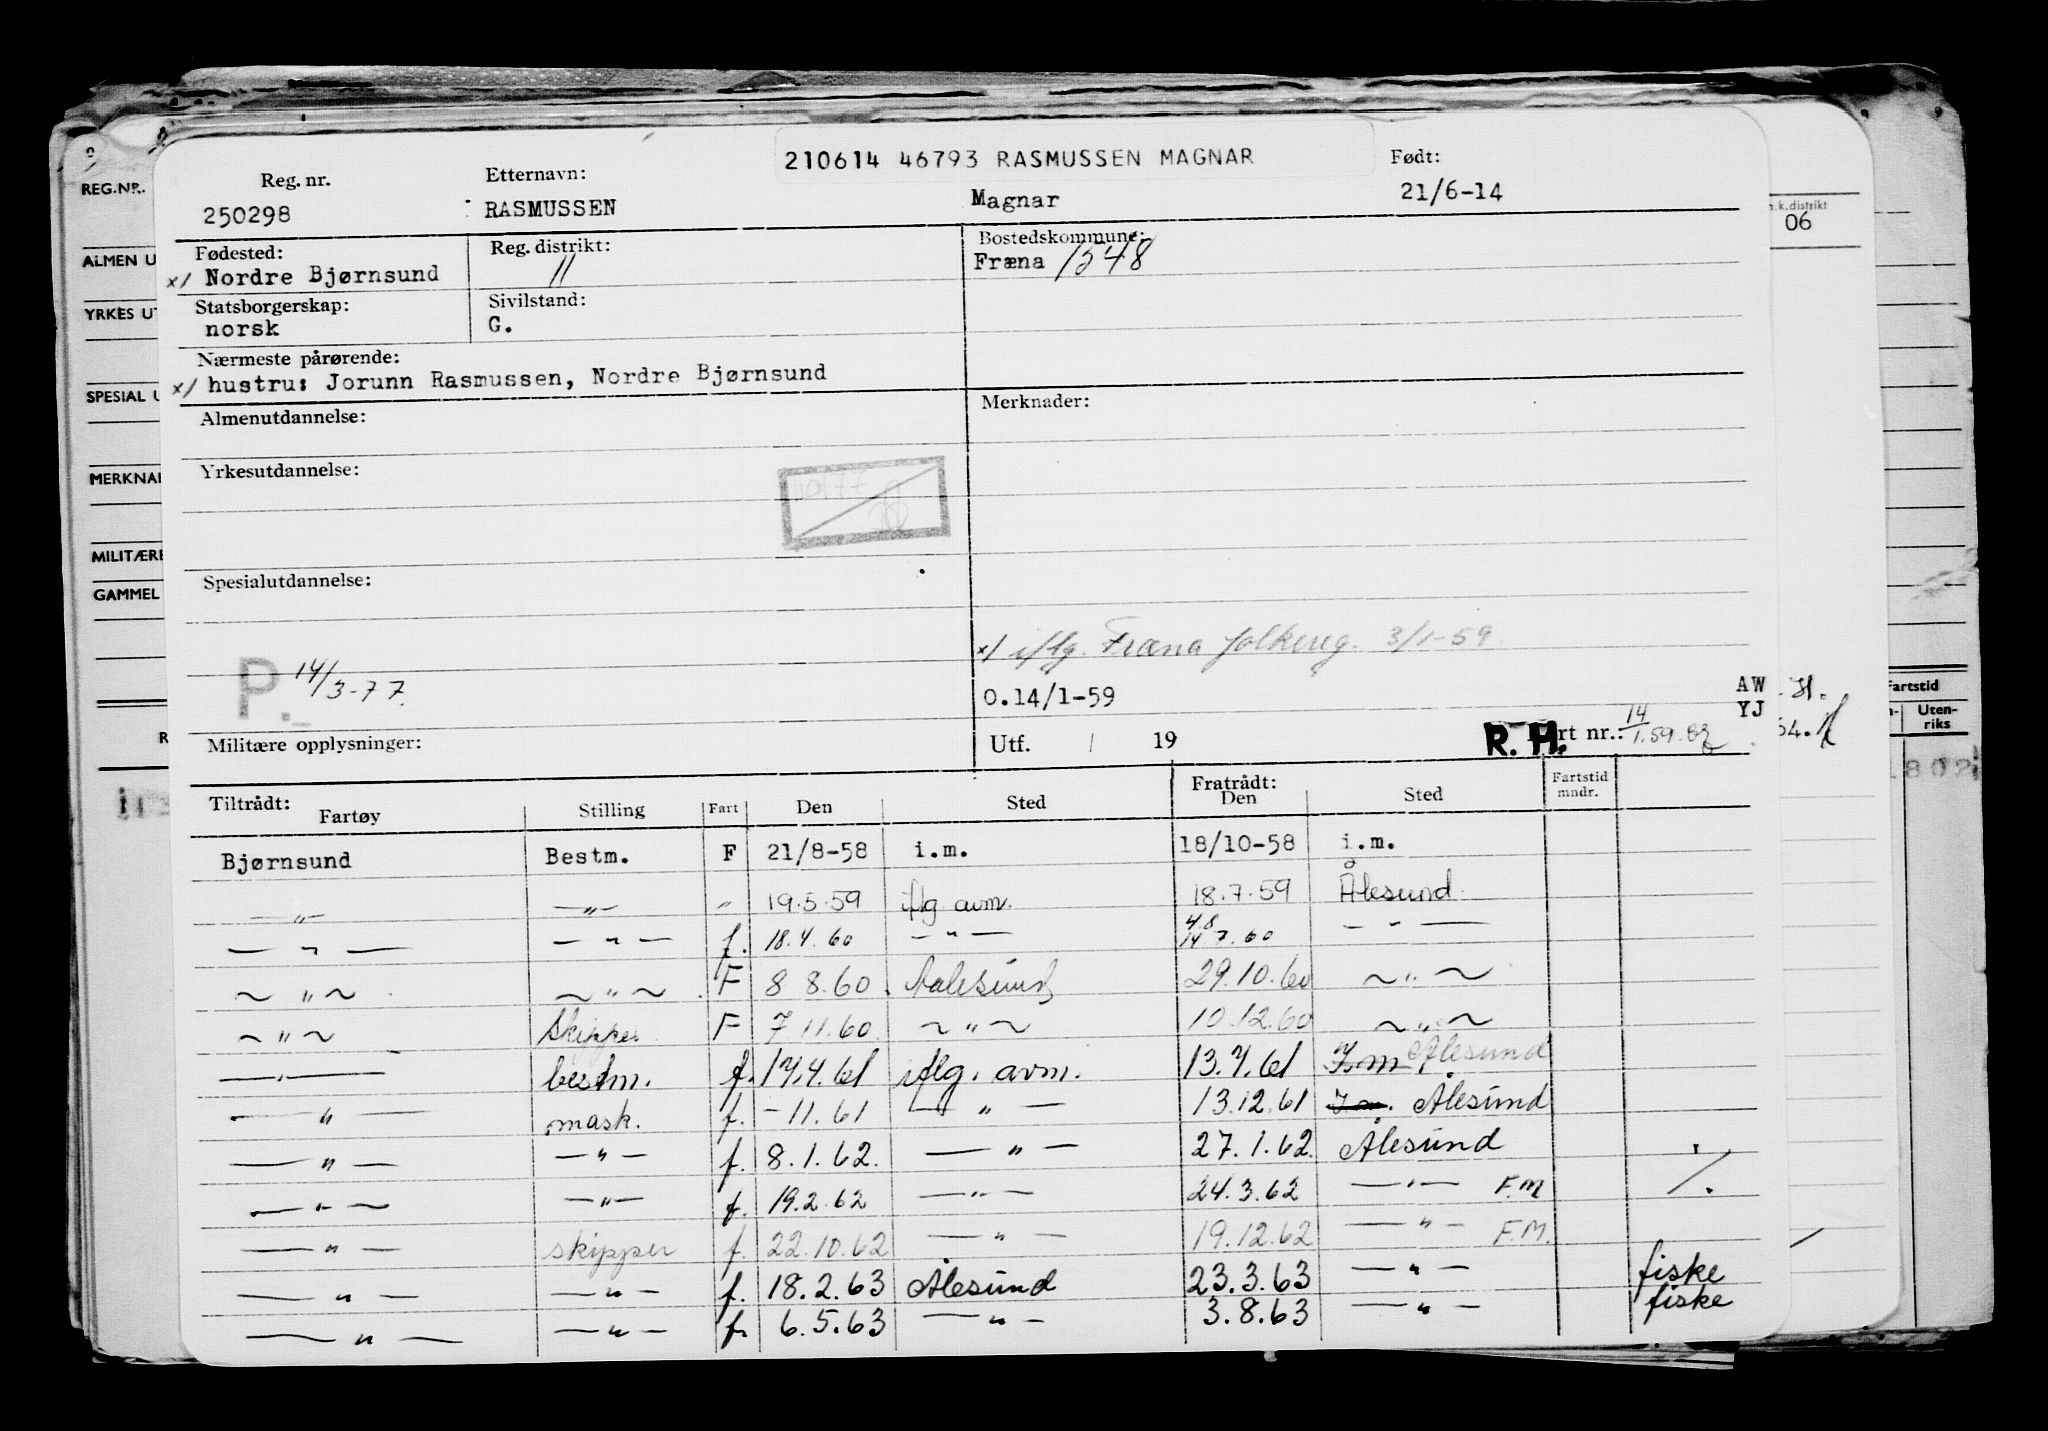 210614 46793 RASMUSSEN MAGNAR
Reg. nr. Etternavn: Født:
250298 RASMUSSEN Magnar 21/6-14
Fødested: Reg. distrikt: Bostedskommune:
x/ Nordre Bjørnsund 11 Fræna 1548
Statsborgerskap: Sivilstand:
norsk G.
Nærmeste pårørende:
x/ hustru: Jorunn Rasmussen, Nordre Bjørnsund
Almenutdannelse: Merknader:
Yrkesutdannelse:
Spesialutdannelse:
x/ iflg. Fræna folkereg. 3/1-59
P. 14/3-77. O.14/1-59 AW
YJ
Militære opplysninger: Utf. / 19 R. H. rt nr.: 14/1.59.
Tiltrådt: Fratrådt: Fartstid mndr.
Fartøy Stilling Fart Den Sted Den Sted
Bjørnsund Bestm. F 21/8-58 i.m. 18/10-58 i.m.
—"— —"— " 19.5.59 iflg avm. 18.7.59 Ålesund
—"— —"— f. 18.4.60 —"— 4.8 14.7.60 —"—
—"— —"— F 8 8.60 Aalesund 29.10.60 —"—
—"— Skipper F 7 11.60 —"— 10.12.60 —"—
—"— bestm. f. 17.4.61 iflg. avm. 13.7.61 I.m. Ålesund
—"— mask. f. -11.61 —"— 13.12.61 I.m. Ålesund
—"— —"— f. 8.1.62. —"— 27.1.62 Ålesund
—"— —"— f. 19.2.62 —"— 24.3.62 —"— F.M
—"— skipper f. 22.10.62 —"— 19.12.62 —"— F.M.
—"— —"— f. 18.2.63 Ålesund 23.3.63 —"— fiske
—"— —"— f. 6.5.63 —"— 3.8.63 —"— fiske
REG.NR.
ALMEN U
YRKES UT
SPESIAL U
MERKNA
MILITÆRE
GAMMEL
R
k.distrikt
06
Fartstid
Uten-
riks